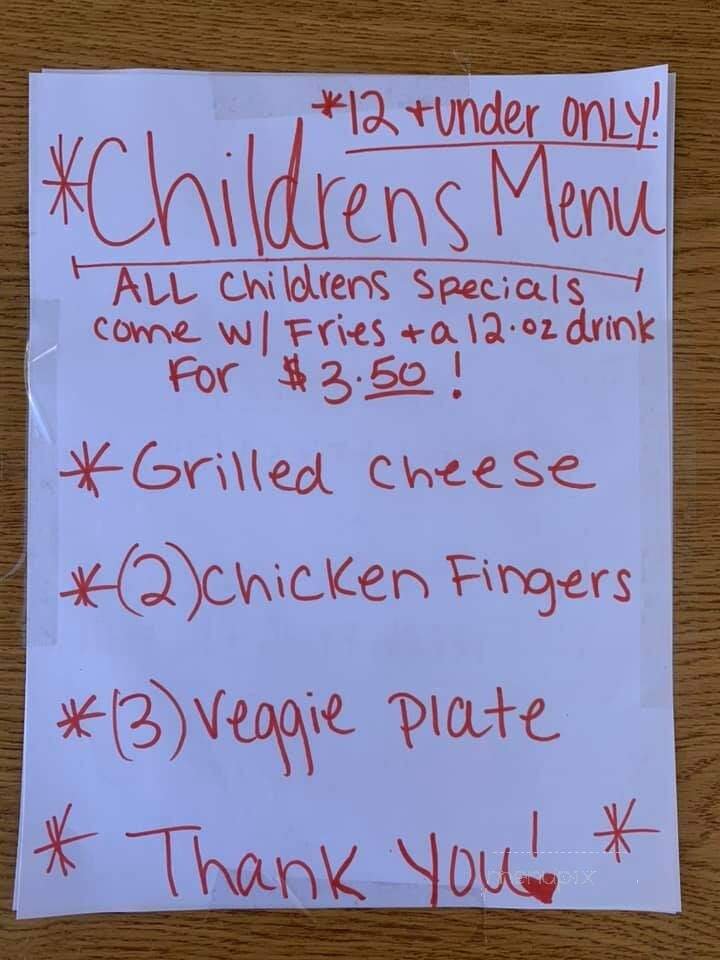 *12 + under ONLY!
*Childrens Menu
ALL Childrens Specials
come w/ Fries + a 12.oz drink
For $3.50!
*Grilled cheese
*(2)chicken Fingers
*(3)veggie plate
* Thank you! *
menupix